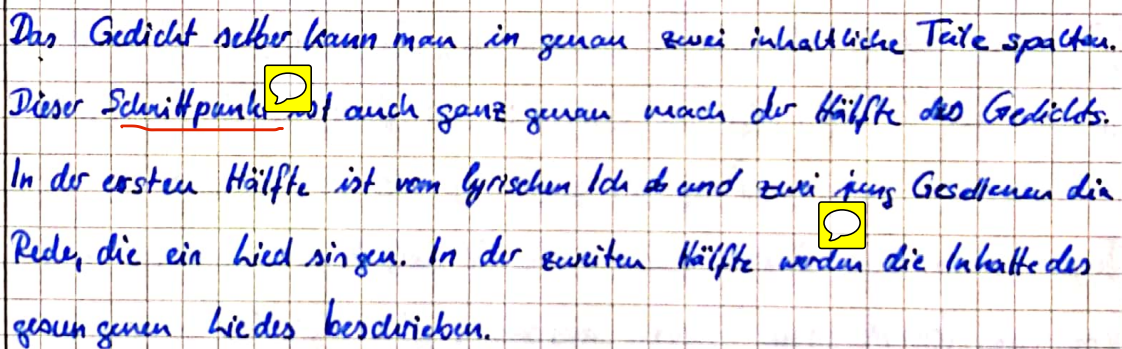 Das Gedicht selber kann man in genau zwei inhaltliche Teile spalten.
Dieser Schnittpunkt ist auch ganz genau nach der Hälfte des Gedichts.
In der ersten Hälfte ist vom lyrischen Ich und zwei jung Gesellenen die
Rede, die ein Lied singen. In der zweiten Hälfte werden die Inhalte des
gesungenen Liedes beschrieben.